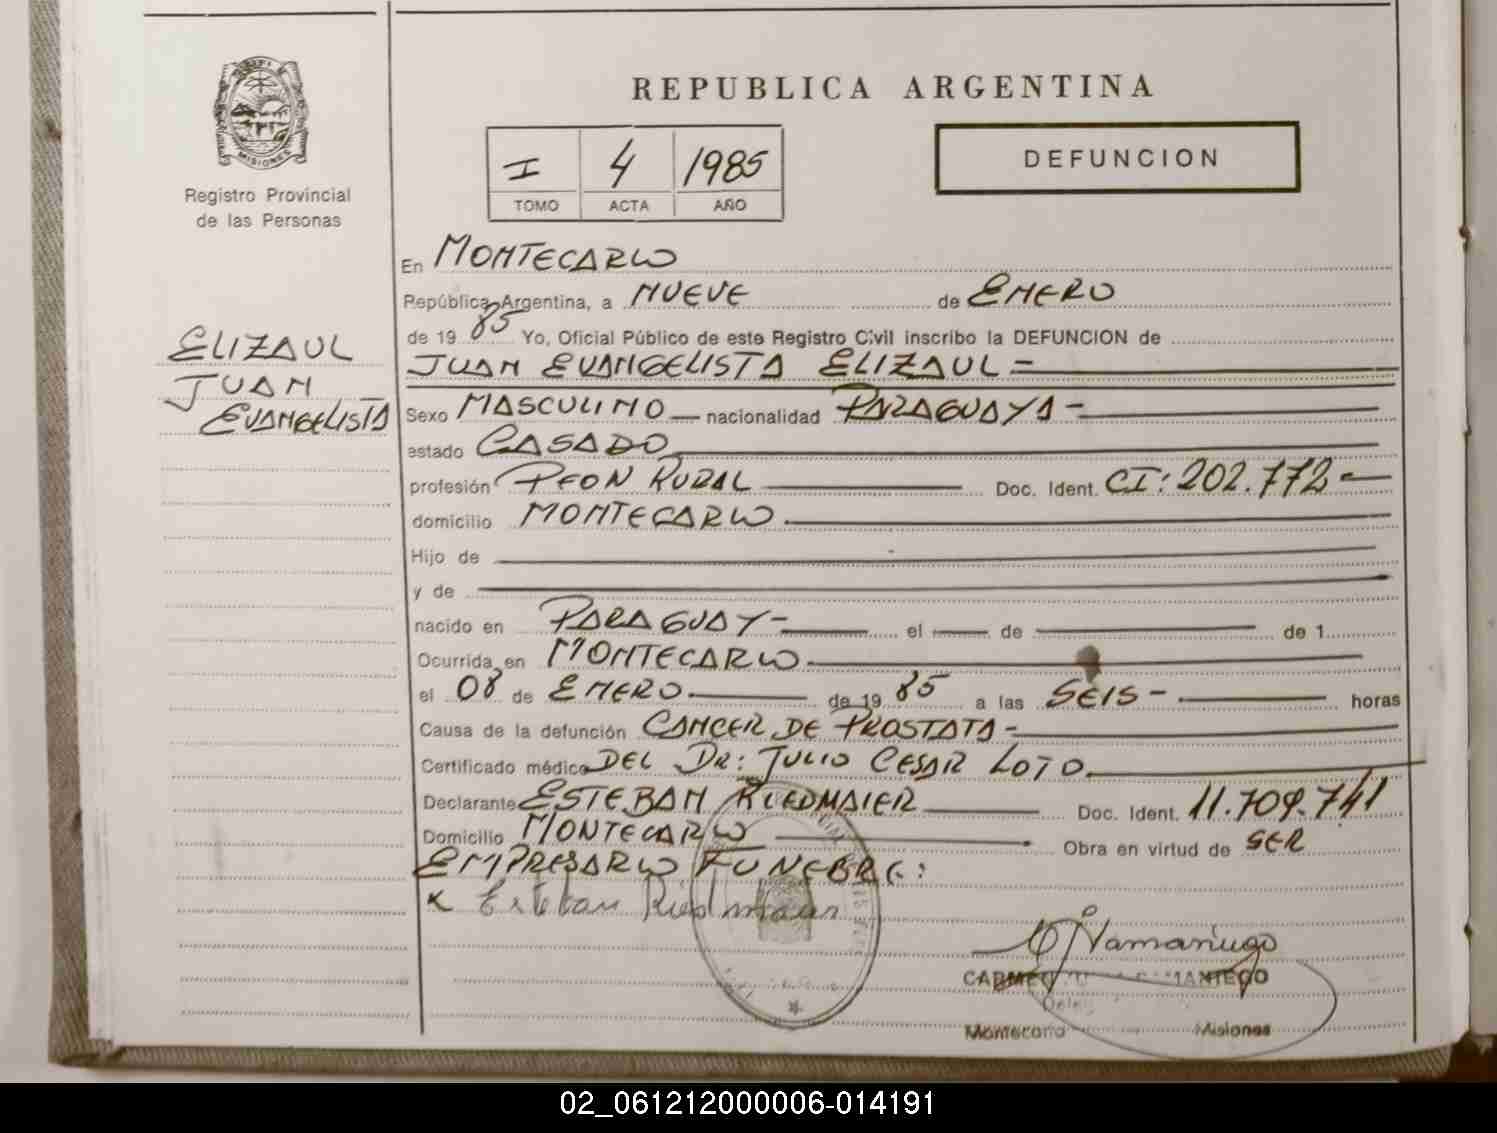 MISIONES
Registro Provincial
de las Personas
ELIZAUL
JUAN
EVANGELISTA
REPUBLICA ARGENTINA
I 4 1985
TOMO ACTA AÑO
DEFUNCION
En MONTECARLO
República Argentina, a NUEVE de ENERO
de 19 85 Yo, Oficial Público de este Registro Civil inscribo la DEFUNCION de
JUAN EVANGELISTA ELIZAUL =
Sexo MASCULINO nacionalidad PARAGUAYA -
estado CASADO
profesión PEON RURAL Doc. Ident. CI: 202.772 -
domicilio MONTECARLO
Hijo de
y de
nacido en PARAGUAY - el de de 1
Ocurrida en MONTECARLO
el 08 de ENERO de 19 85 a las SEIS - horas
Causa de la defunción CANCER DE PROSTATA -
Certificado médico DEL DR: JULIO CESAR LOTO
Declarante ESTEBAN RIEDMAIER Doc. Ident. 11.709.741
Domicilio MONTECARLO Obra en virtud de SER
EMPRESARIO FUNEBRE:
x Esteban Riedmaier
CARMEN SAMANIEGO
Montecarlo Misiones
02_061212000006-014191